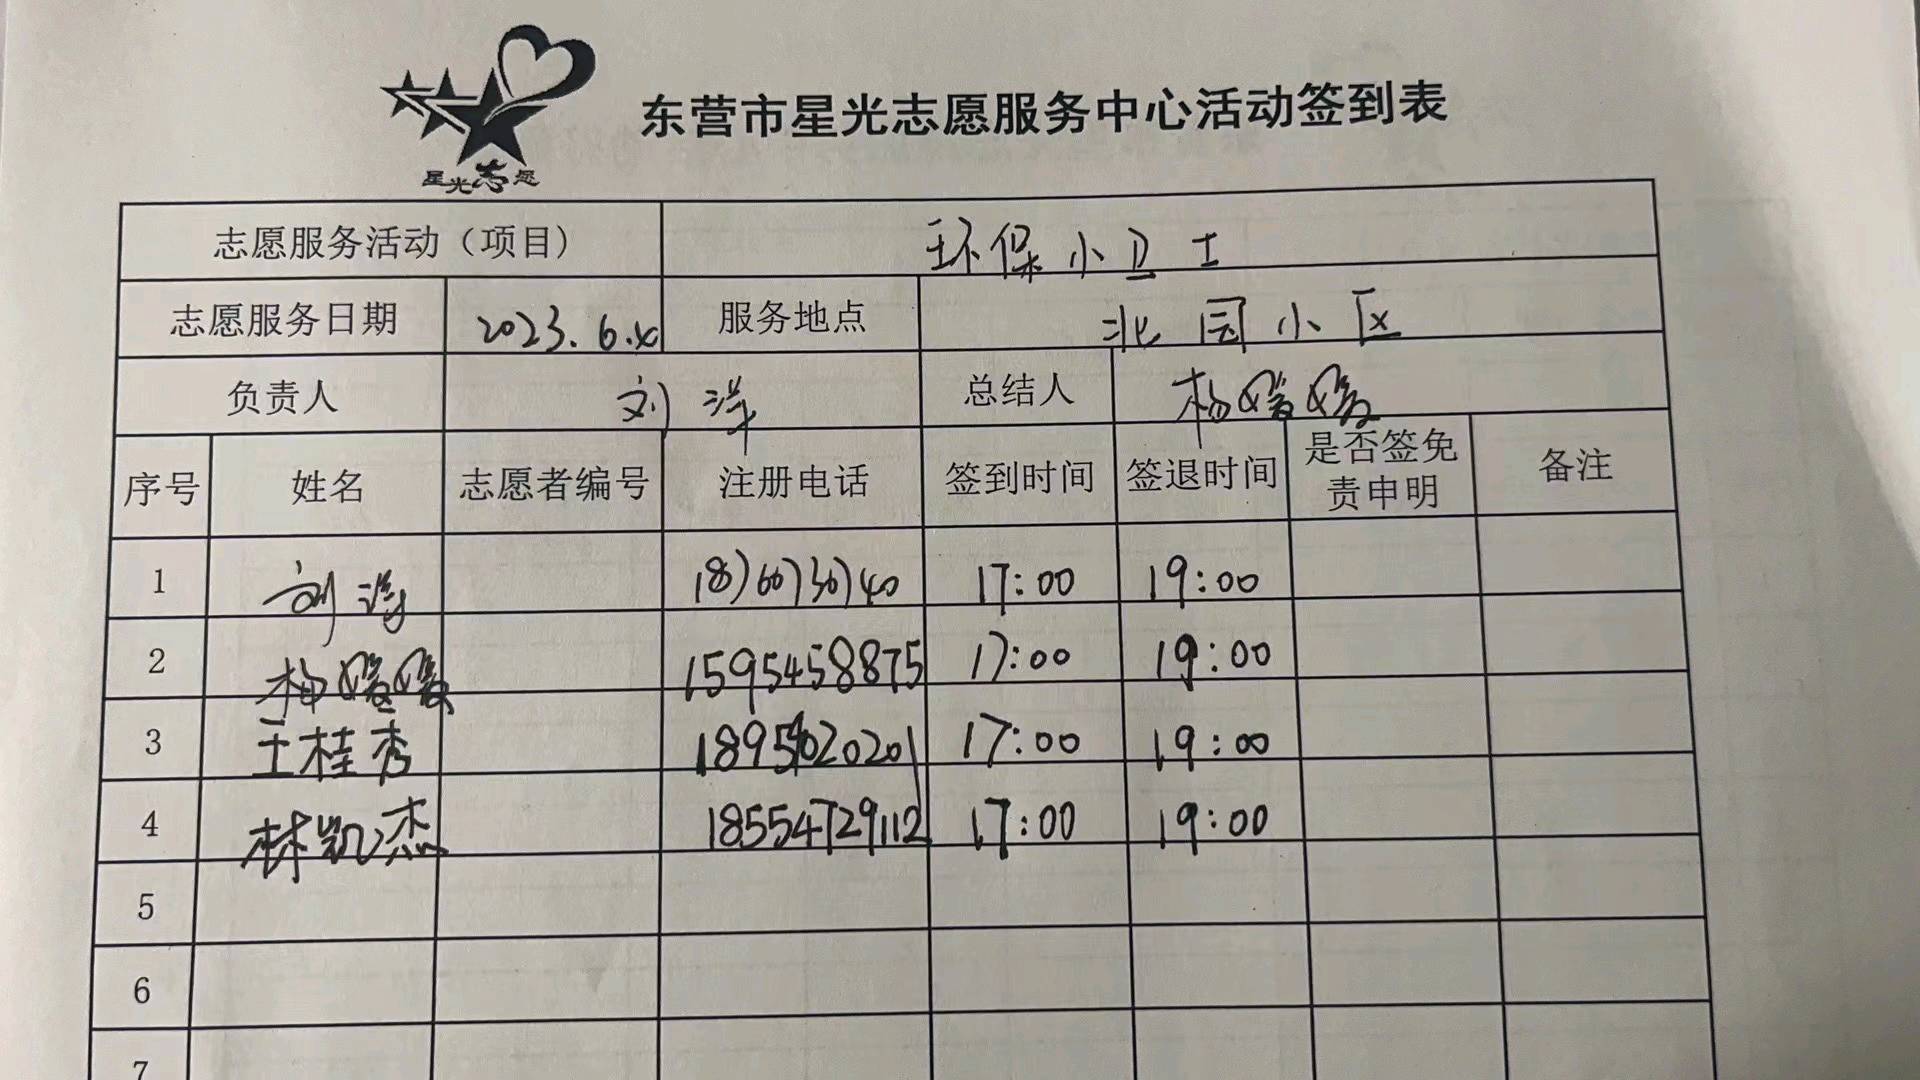 星光志愿
东营市星光志愿服务中心活动签到表
志愿服务活动（项目） 环保小卫士
志愿服务日期 2023.6.4 服务地点 北园小区
负责人 刘洋 总结人 杨媛媛
序号 姓名 志愿者编号 注册电话 签到时间 签退时间 是否签免责申明 备注
1 刘洋 18766730740 17:00 19:00
2 杨媛媛 1595458875 17:00 19:00
3 王桂秀 17:00 19:00
4 林凯杰 18554729112 17:00 19:00
5
6
7